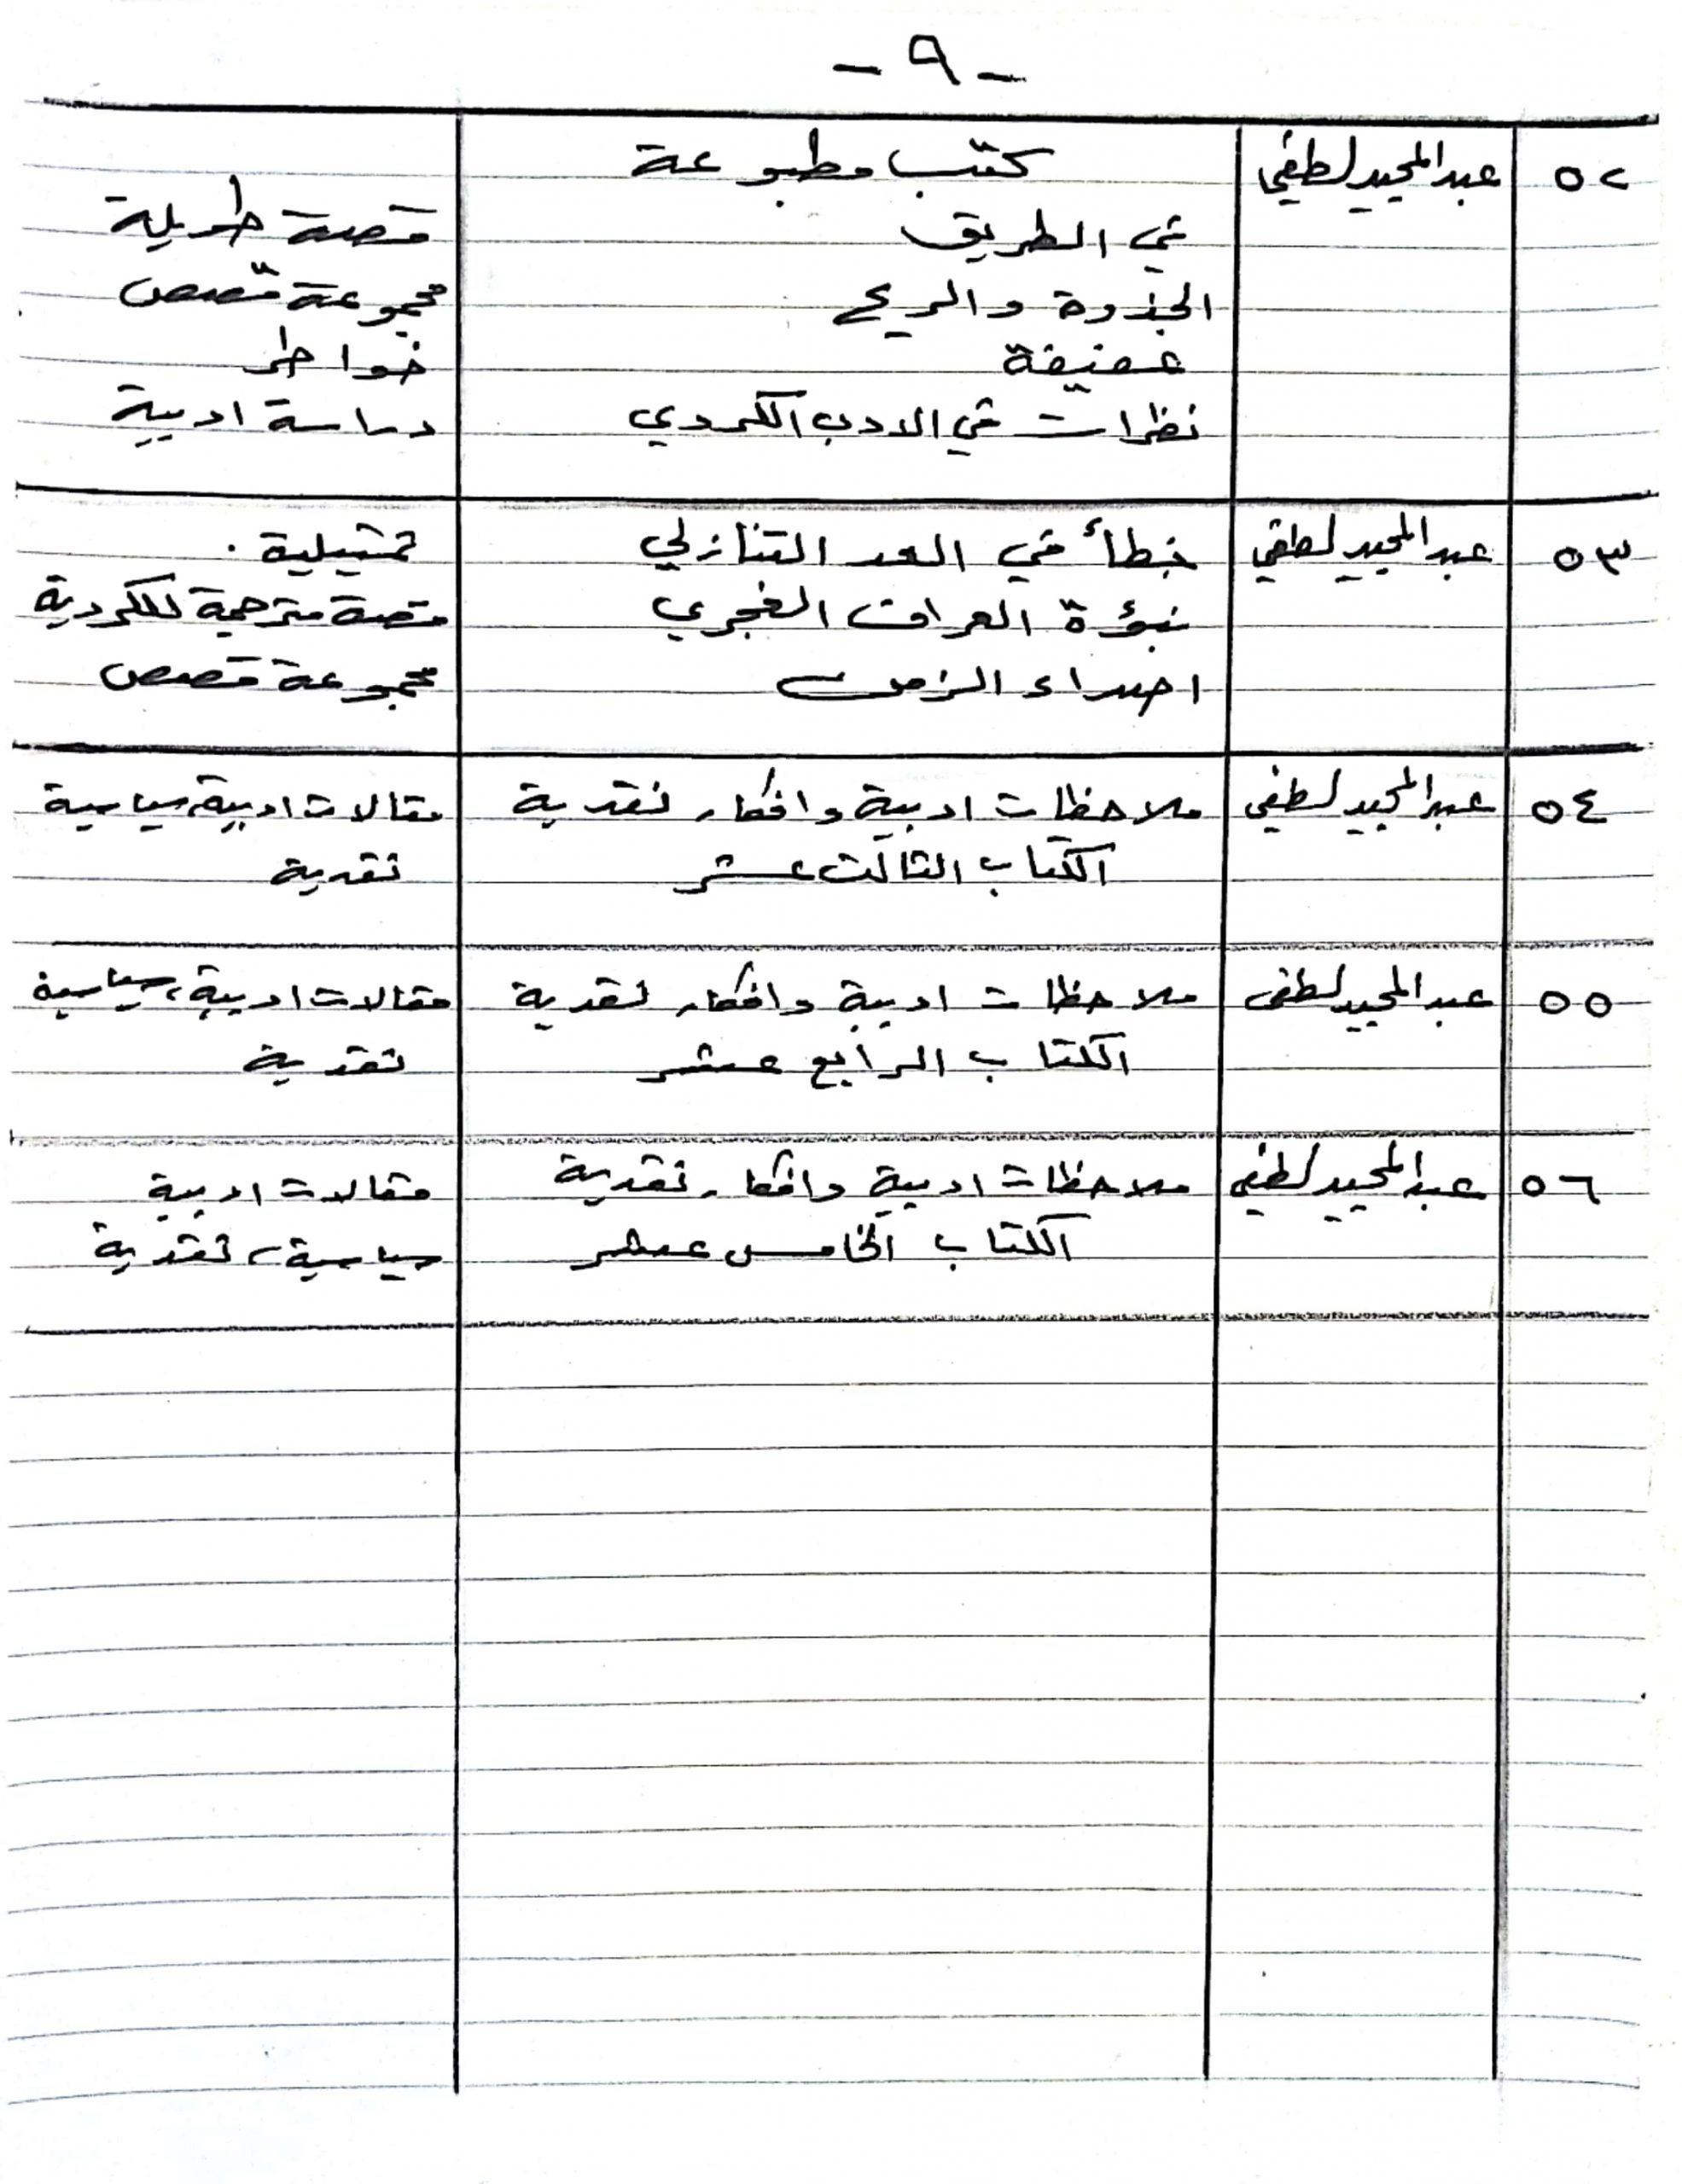 - ٩ -
٥٢ عبدالمجيد لطفي كتب مطبوعة
في الطريق قصة طويلة
الجذوة والريح مجموعة قصص
عفيفة خواطر
نظرات في الادب الكردي دراسة ادبية
٥٣ عبدالمجيد لطفي خطأ في العد التنازلي تمثيلية .
نبؤة العراف الغجري قصة مترجمة للكردية
اصداء الزمن مجموعة قصص
٥٤ عبدالمجيد لطفي ملاحظات ادبية وافكار نقدية مقالات ادبية، سياسية
الكتاب الثالث عشر نقدية
٥٥ عبدالمجيد لطفي ملاحظات ادبية وافكار نقدية مقالات ادبية، سياسية
الكتاب الرابع عشر نقدية
٥٦ عبدالمجيد لطفي ملاحظات ادبية وافكار نقدية مقالات ادبية
الكتاب الخامس عشر سياسية، نقدية